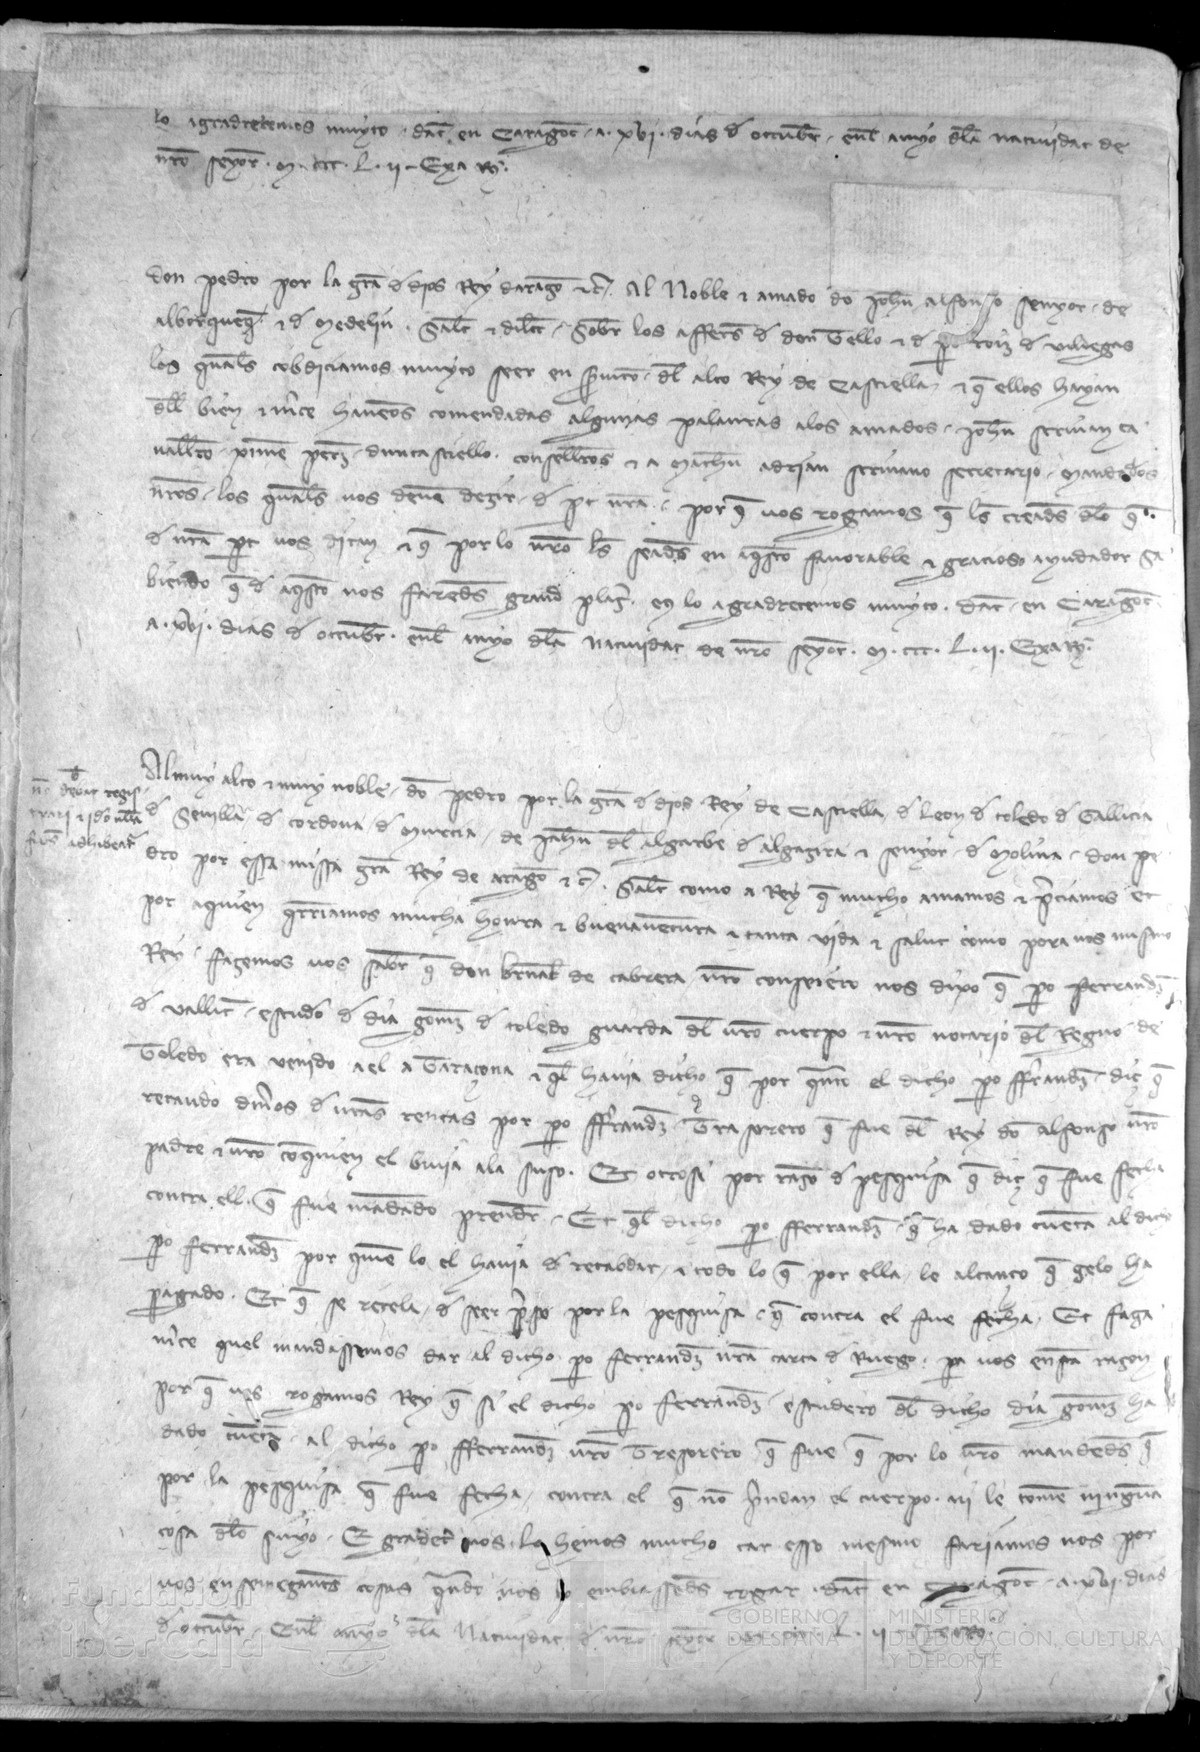 lo agradeceremos muyto. dat en Caragoça. a. xvi. dias d octubr. enl anyo dla natiuidat de
nro seyor. M. ccc. L. ii. Exa Rꝫ.
don pedro por la gra d dios Rey daragon etc. Al Noble et amado don Johan alfonso senyor. de
alborquerq et d Medelin. Salut et dilec. Sobr los affers d don Tello et d pero roiz d villiegas
los quals cobdiciamos muyto seer en seruicio dl alto Rey de Castiella et q ellos hayan
dll bien et mce hauemos comendadas algunas palauras alos amados Johan scriuan ca
uallero ximen perz duncastiello. conselleros et a Matheu adrian scriuano secretario. mandaderos
nros. los quals uos deuen dezir. d pt nra. por q uos rogamos q ls creades dlo q
d nra pt uos diran et q por lo nro ls seades en aqsto fauorable et gracioso ayudador Sa
biendo q d aqsto nos faredes grand plazer. en lo agradeceremos muyto. dat. en Caragoça
a. xvi. dias d octubr. enl anyo dla natiuidat de nro seyor. M. ccc. L. ii. Exa Rꝫ.
Al muy alto et muy noble. don pedro por la gra d dios Rey de Castiella d Leon d toledo d Gallicia
no debet regis
trari et ido nulla
fides adhibeatr
d Seuilla d cordoua d Murcia. de Jahen dl algarbe d algezira et senyor d Molina. don pe
dro por essa missa gra Rey de aragon etc. Salut como a Rey q mucho amamos et preciamos et
por a quien qrriamos mucha honra et buenauentura et tanta vida et salut como pora nos mismo
Rey. fazemos uos saber q don bernat de cabrera nro conseiero nos dixo q pero ferrandz
d vallit. escudo d dia gomz d toledo guarda dl uro cuerpo et uro notario dl Regno de
Toledo era venido a el a Taraçona et ql hauia dicho q por qnto el dicho pero ffrandz. diz q
recaudo dineros d uras rentas por pero ffrandz Trasorero q fue dl Rey don alfonso uro
padre et uro con quien el biuia ala suso. Et otrosi por razon d pesquisa q diz q fue fecha
contra ell. q fue mandado prender. Et ql dicho pero fferrandz q ha dado cuenta al dicho
pero ferrandz por quien lo el hauia d recabdar. et todo lo q por ella le alcanço q gelo ha
pagado. Et q se recela d seer preso por la pesquisa q contra el fue fecha. Et faga
mce quel mandassemos dar al dicho pero ferrandz nra carta d Ruego. pa uos en sta razon
por q uos rogamos Rey q si el dicho pero ferrandz escudero dl dicho dia gomz ha
dado cuenta al dicho pero fferrandz uro Tresorero q fue q por lo nro mandedes q
por la pesquisa q fue fecha contra el q non prendan el cuerpo ni le tomen ninguna
cosa dlo suyo. Et gradecer uos lo hemos mucho car esso mesmo fariamos nos por
uos en semegantes cosas quando nos lo embiassedes rogar. dat en Caragoça. a. xvi. dias
d octubr. Enl anyo dla Natiuidat d nro seyor M. ccc. L. ii. Exa Rꝫ.
Fundación
iberCaja
GOBIERNO
DE ESPAÑA
MINISTERIO
DE EDUCACIÓN, CULTURA
Y DEPORTE